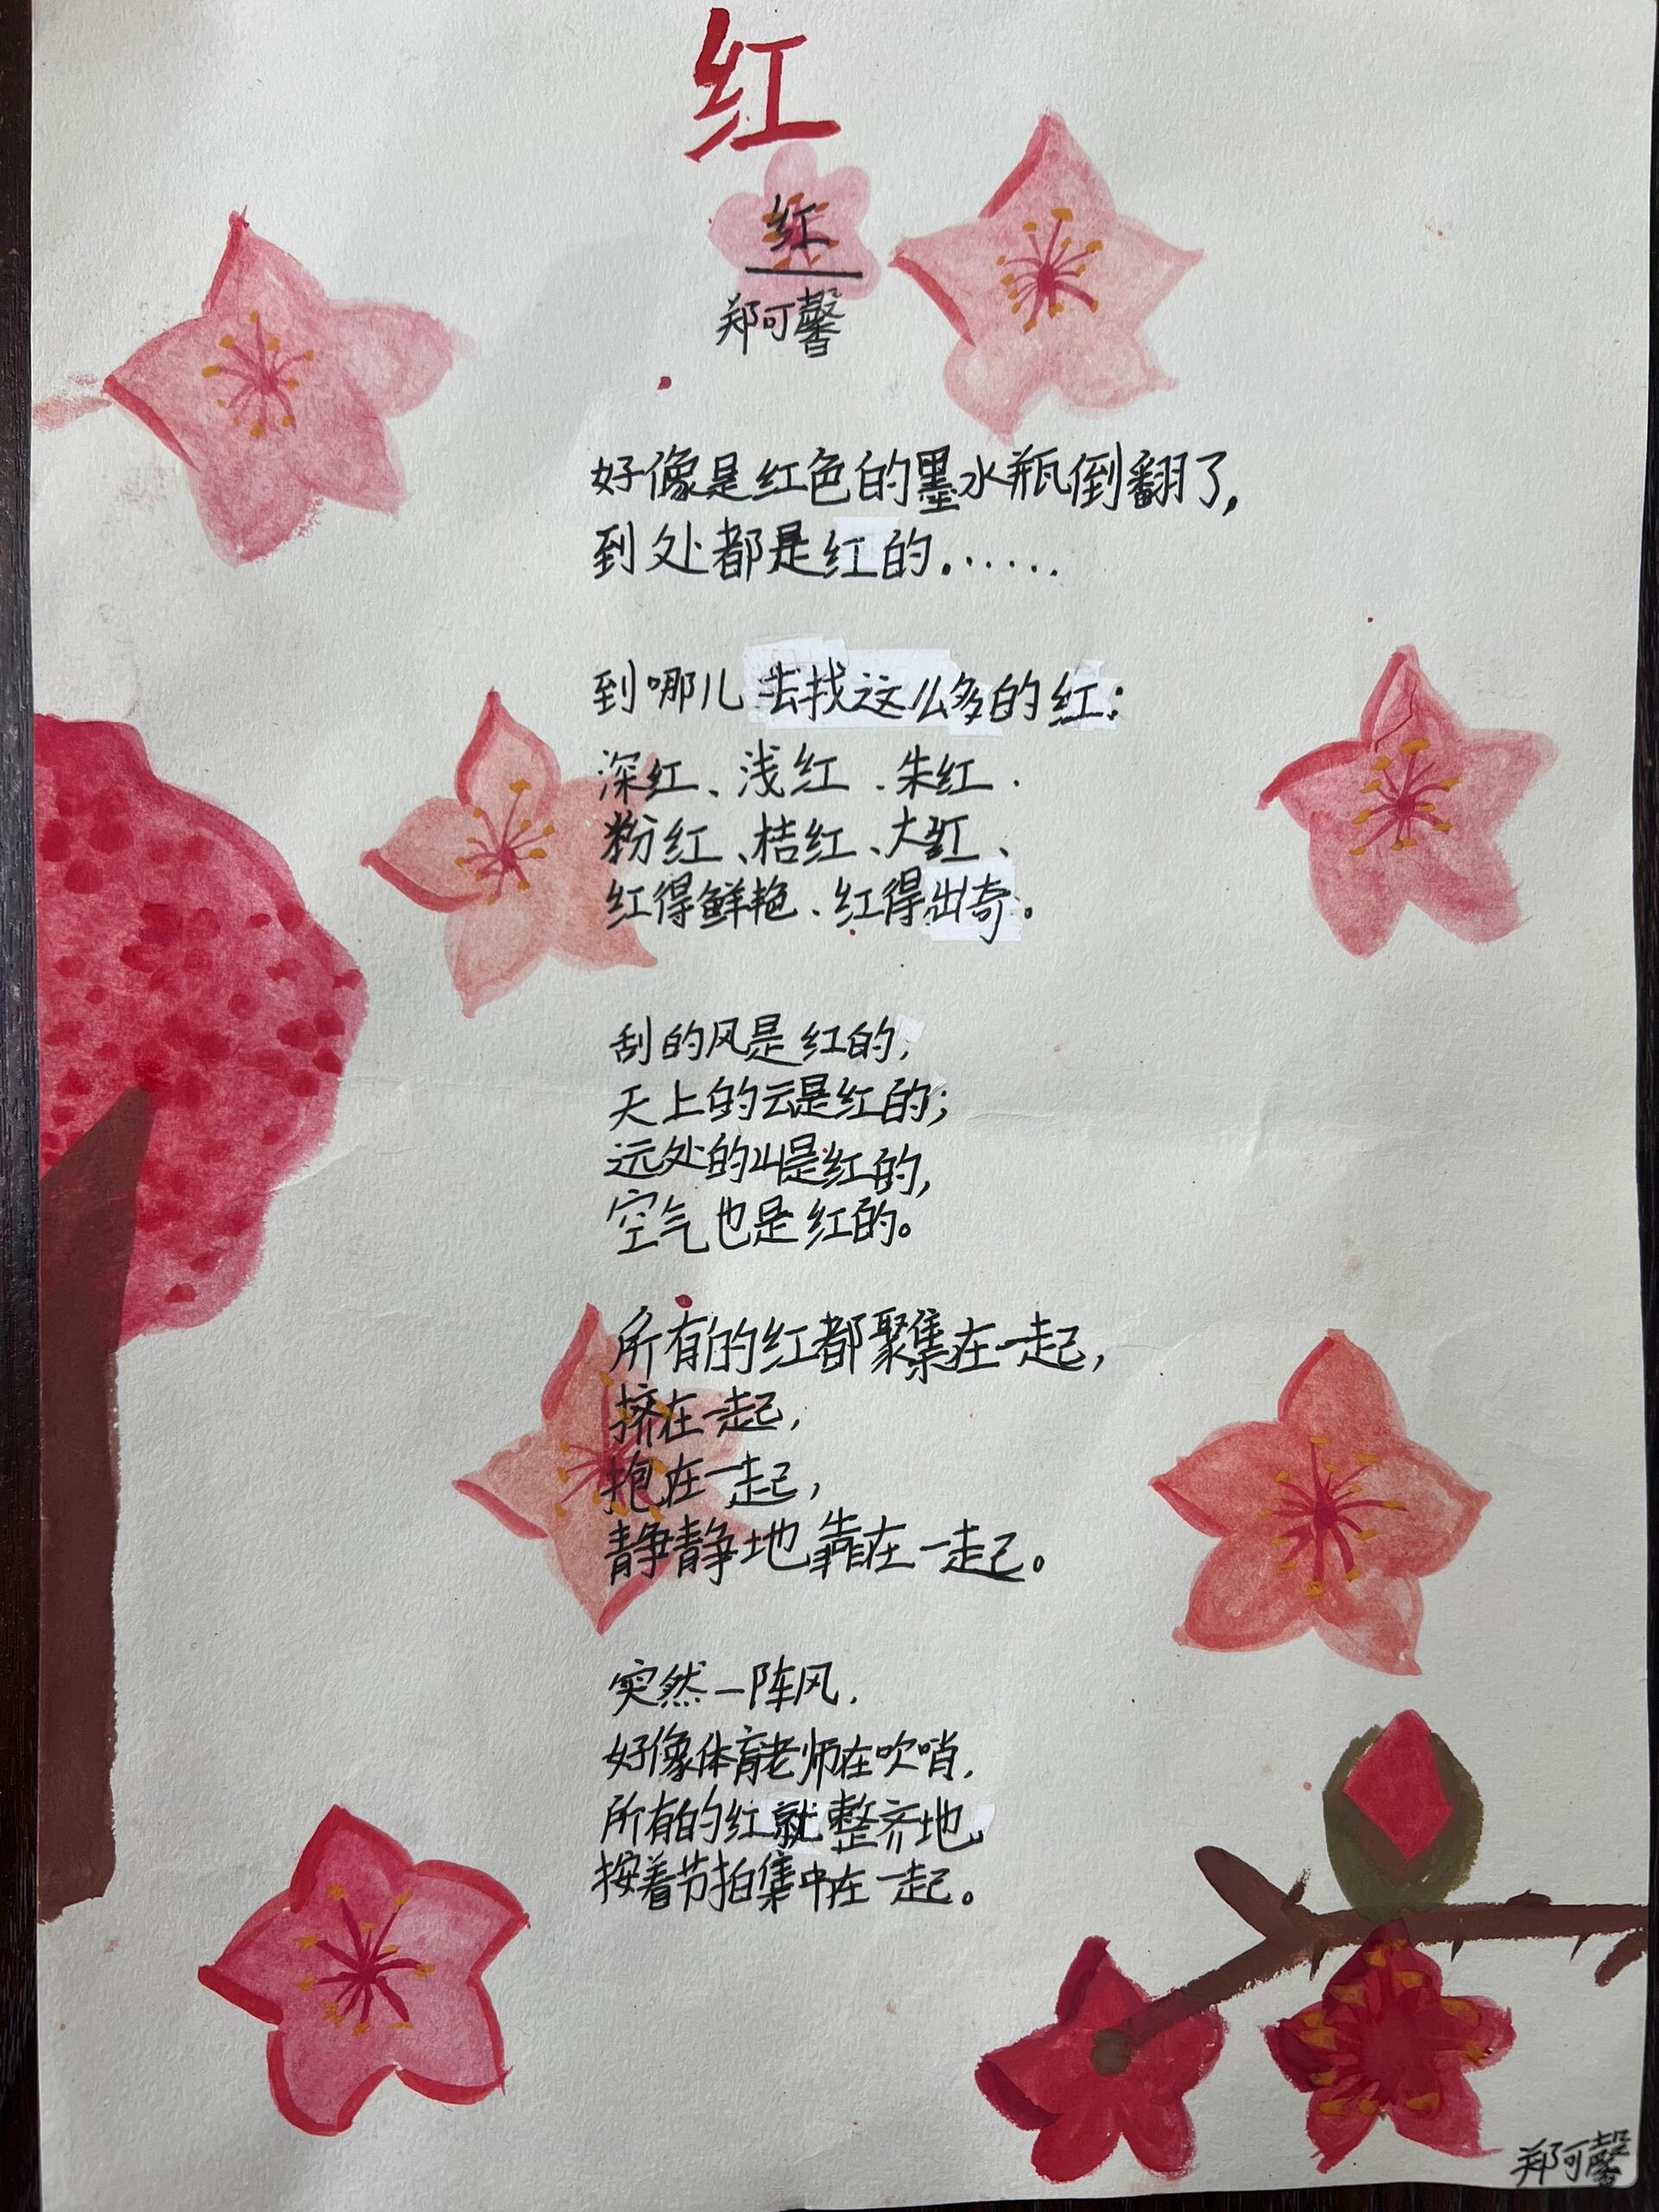 红
红
郑可馨
好像是红色的墨水瓶倒翻了,
到处都是红的......
到哪儿去找这么多的红:
深红、浅红、朱红、
粉红、桔红、大红、
红得鲜艳、红得出奇。
刮的风是红的,
天上的云是红的;
远处的山是红的,
空气也是红的。
所有的红都聚集在一起,
挤在一起,
抱在一起,
静静地靠在一起。
突然一阵风,
好像体育老师在吹哨,
所有的红就整齐地,
按着节拍集中在一起。
郑可馨